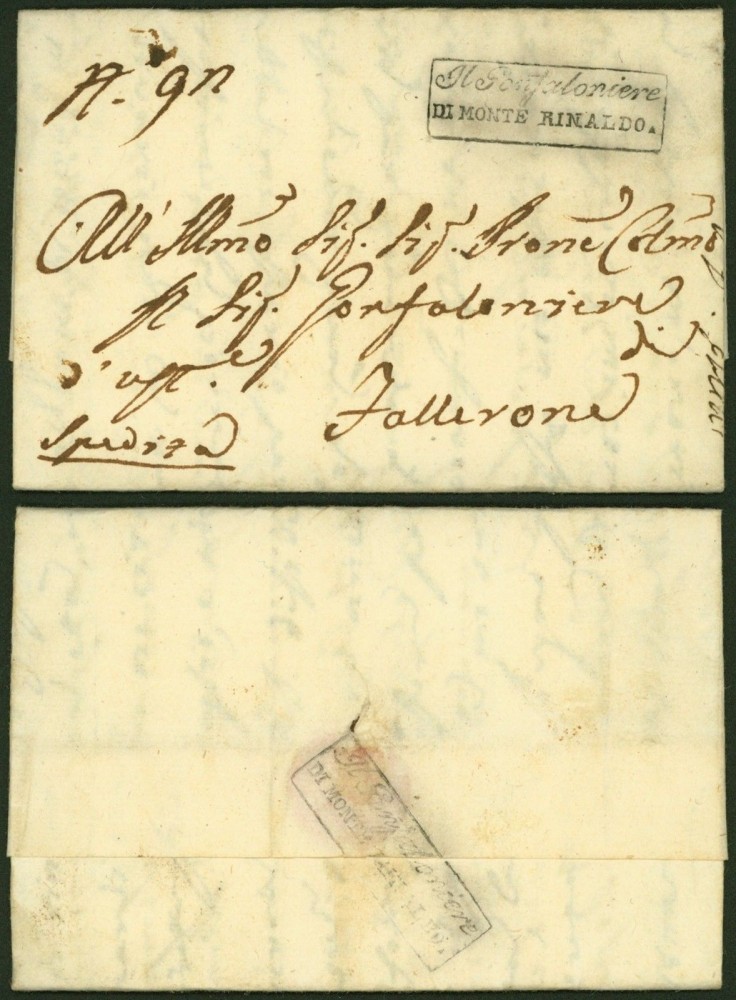 Il Gonfaloniere
DI MONTE RINALDO.
All' Illmo Sig. Sig. Prone Colmo
Il Sig. Gonfaloniere
di
Fallerone
Spedita
Il Gonfaloniere
DI MONTE RINALDO.